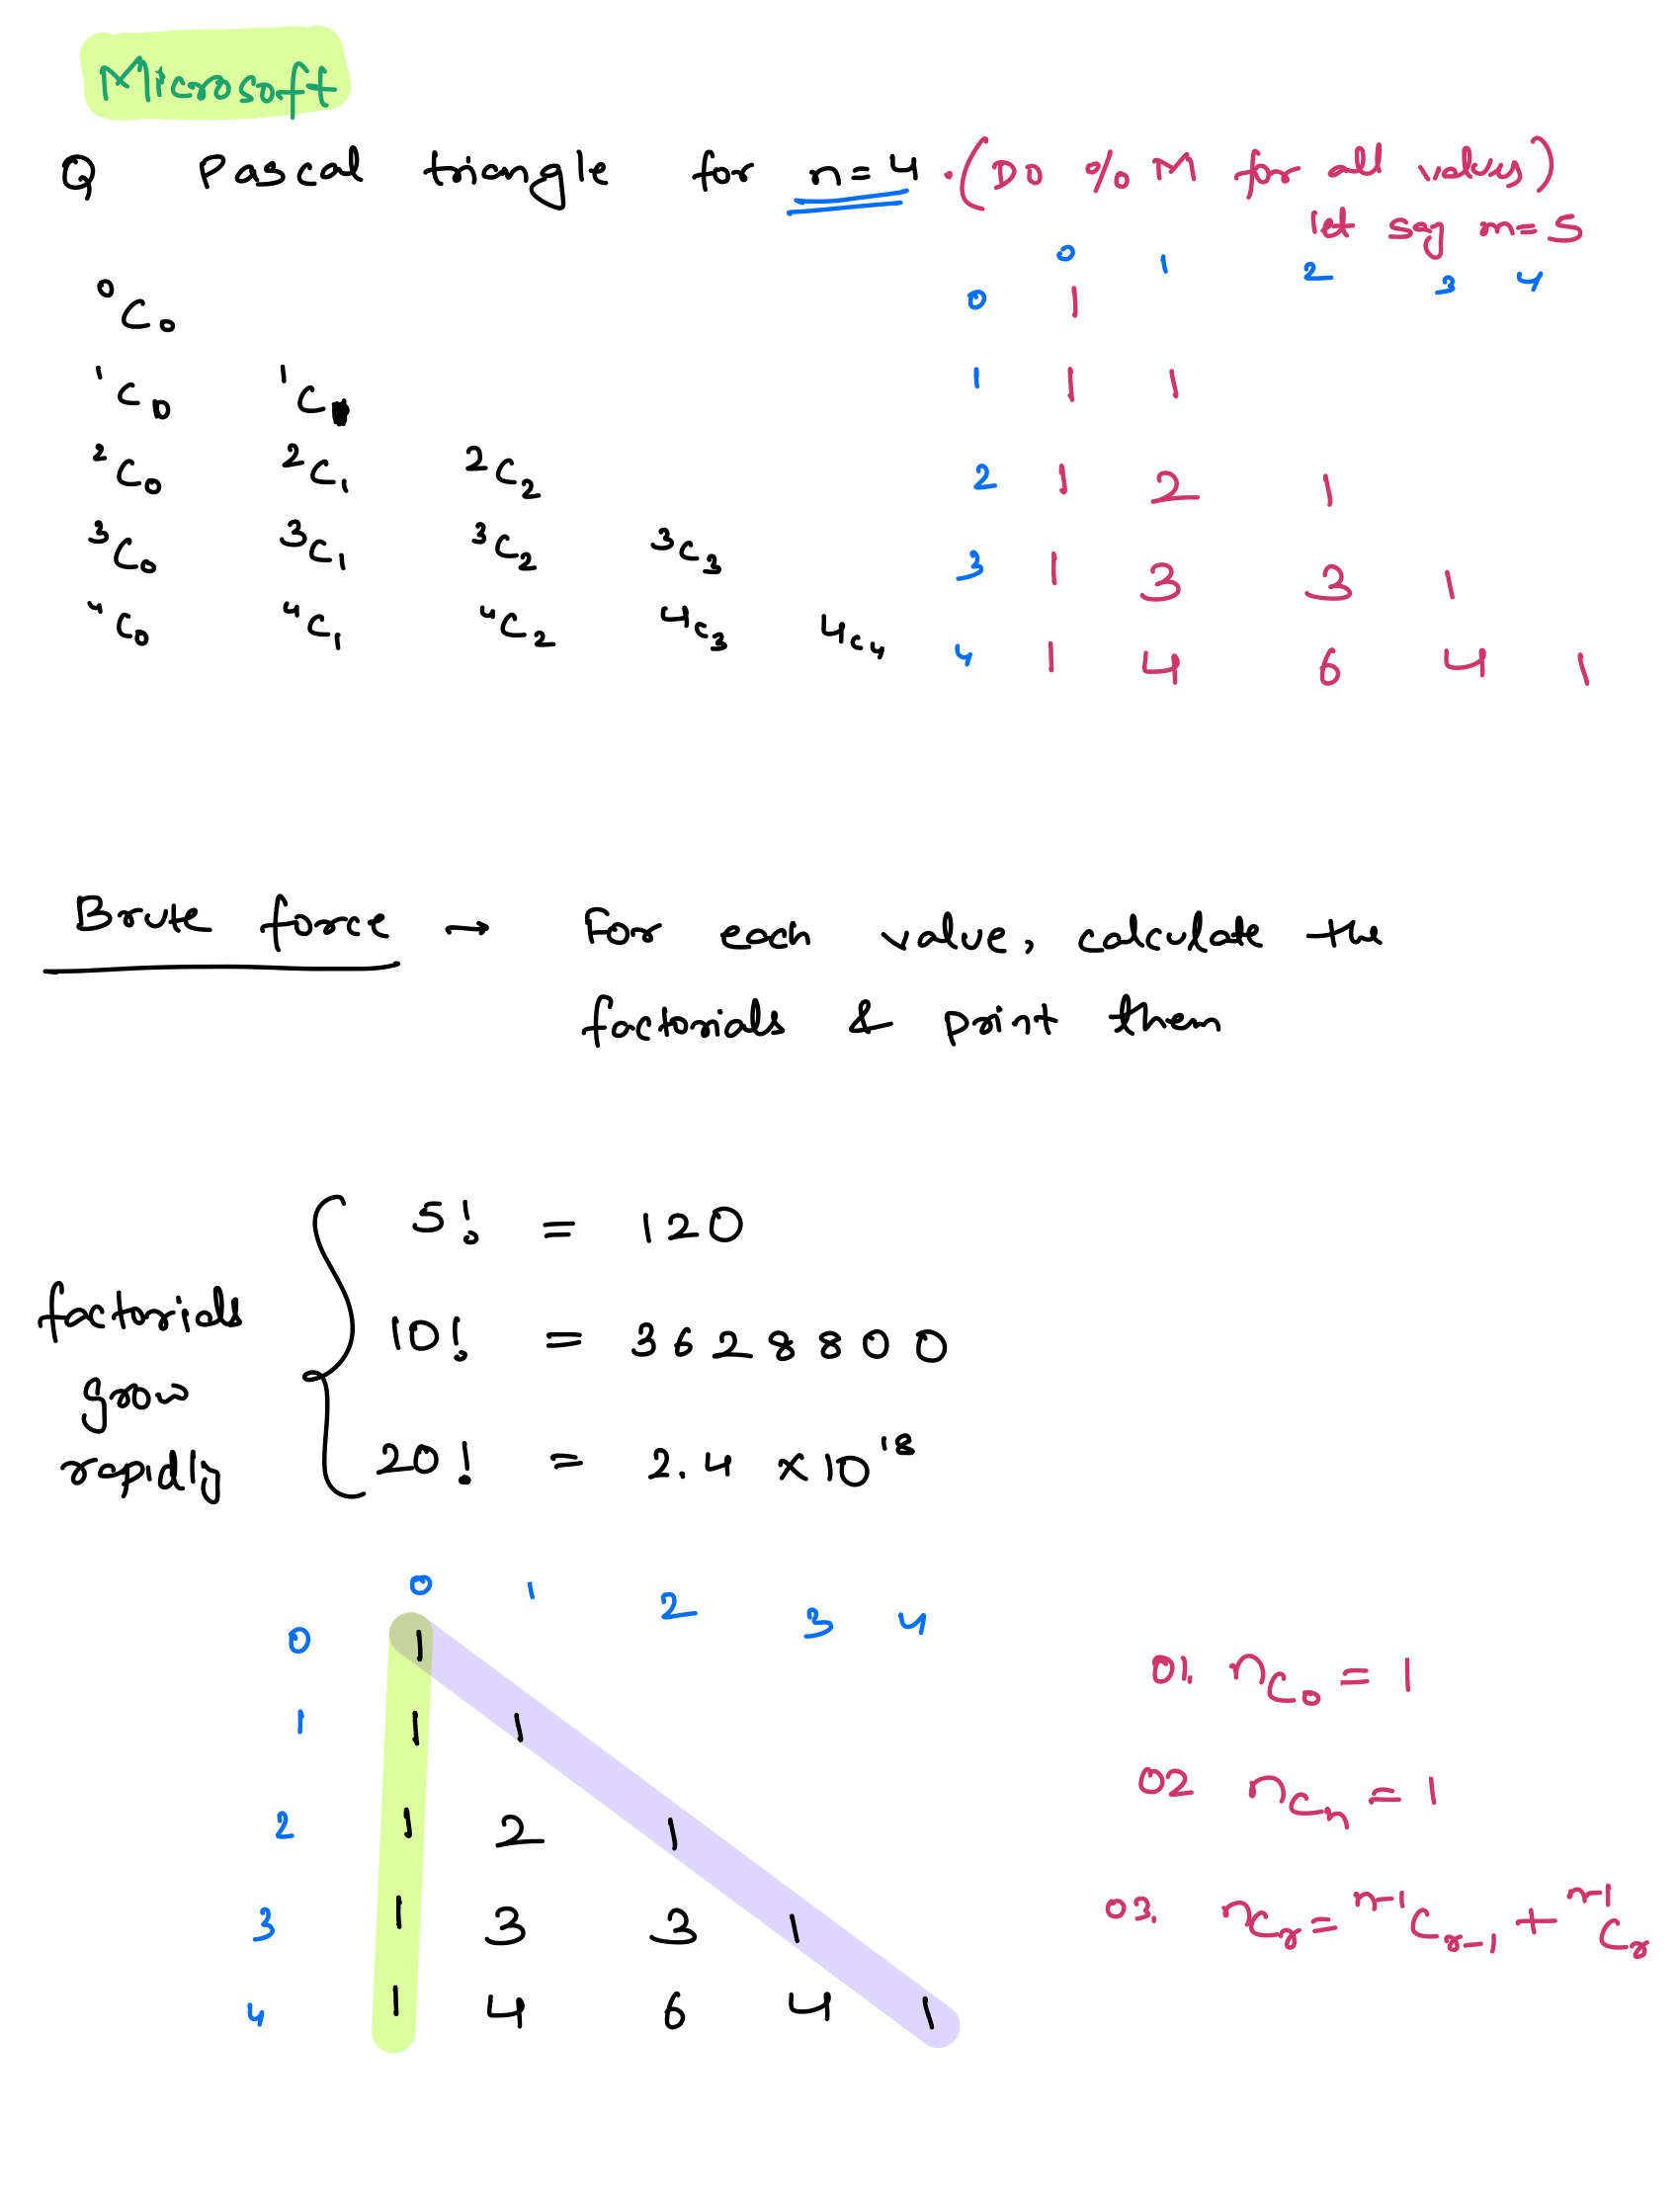 Microsoft
Q Pascal triangle for n=4 . (DO % M for all values)
let say m=5
0 1 2 3 4
⁰C₀ 0 1
¹C₀ ¹C₁ 1 1 1
²C₀ ²C₁ ²C₂ 2 1 2 1
³C₀ ³C₁ ³C₂ ³C₃ 3 1 3 3 1
⁴C₀ ⁴C₁ ⁴C₂ ⁴C₃ ⁴C₄ 4 1 4 6 4 1
Brute force → For each value, calculate the
factorials & print them
factorials grow rapidly
5! = 120
10! = 3628800
20! = 2.4 ×10¹⁸
0 1 2 3 4
0 1
1 1 1
2 1 2 1
3 1 3 3 1
4 1 4 6 4 1
01. ⁿC₀ = 1
02 ⁿCₙ = 1
03. ⁿCᵣ = ⁿ⁻¹Cᵣ₋₁ + ⁿ⁻¹Cᵣ